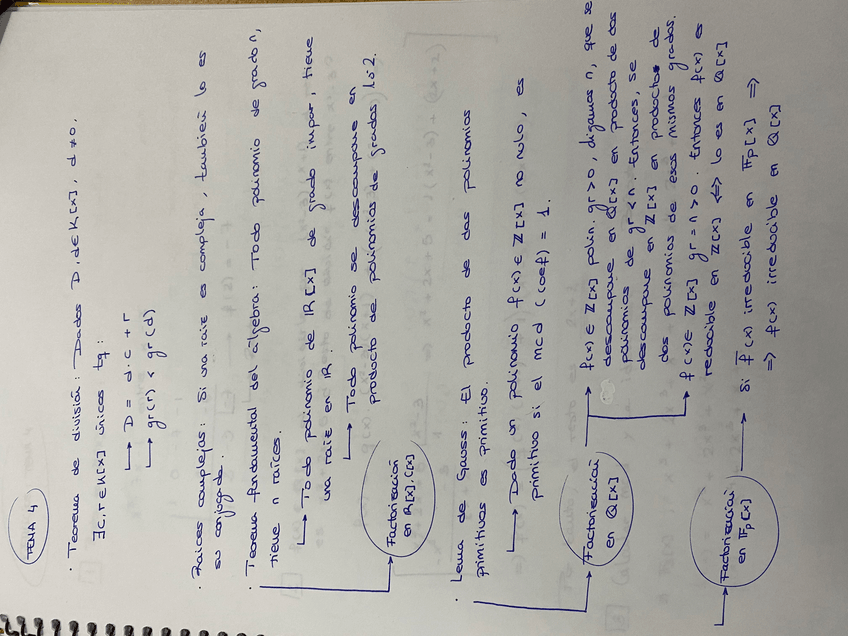 TEMA 4
· Teorema de división: Dados D, d ∈ K[x], d ≠ 0,
∃ c, r ∈ K[x] únicos tq:
→ D = d · c + r
→ gr(r) < gr(d)
· Raíces complejas: Si una raíz es compleja, también lo es
su conjugado.
· Teorema fundamental del álgebra: Todo polinomio de grado n,
tiene n raíces.
→ Todo polinomio de R[x] de grado impar, tiene
una raíz en R.
→ Todo polinomio se descompone en
producto de polinomios de grados 1 ó 2.
Factorización
en R[x], C[x]
· Lema de Gauss: El producto de dos polinomios
primitivos es primitivo.
→ Dado un polinomio f(x) ∈ Z[x] no nulo, es
primitivo si el mcd (coef) = 1.
Factorización
en Q[x]
→ f(x) ∈ Z[x] polin. gr > 0, digamos n, que se
descompone en Q[x] en producto de dos
polinomios de gr < n. Entonces, se
descompone en Z[x] en productos de
dos polinomios de esos mismos grados.
→ f(x) ∈ Z[x] gr = n > 0. Entonces f(x) es
reducible en Z[x] ⇔ lo es en Q[x]
Factorización
en Fp[x]
→ Si f̅(x) irreducible en Fp[x] ⇒
⇒ f(x) irreducible en Q[x]